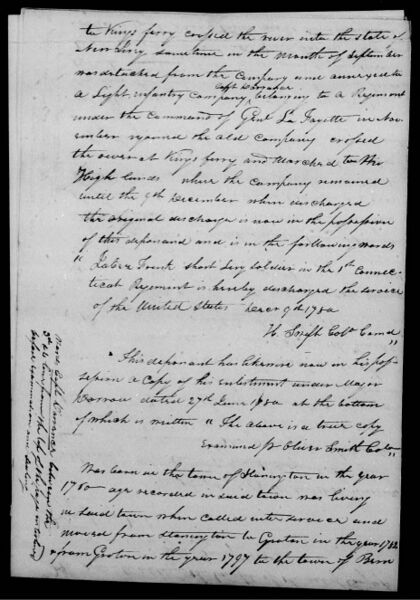 to Kings ferry crossed the river into the state of
New Jersey sometime in the month of September
was detached from the Company and annexed to
Capt Warraner
a Light infantry Company belonging to a Regiment
under the command of Genl La Fayette in Nov
ember rejoined the old Company crossed
the river at Kings ferry and Marched to the
High lands where the Company remained
until the 9th December when discharged
the original discharge is now in the possession
of this deponand and is in the following words
" Jabez Frink short Levy soldier in the 1st Connec
ticut Regiment is hereby discharged the service
of the United States Decer 9th 1780
H. Smith Cobl Comd "
"This deponant has likewise now in his pos
session a Copy of his enlistment under Major
dated 27th June 1780 at the bottom
of which is written " The above is a true copy
Examined pr Oliver Smith Col "
Was born in the town of Stonington in the year
1760 age recorded in said town was living
in said town when called into service and
moved from Stonington to Groton in the year 1782
& from Groton in the year 1797 to the town of Bern
Note Capt Warraner between the
3d & 4 line from the top
before examination and